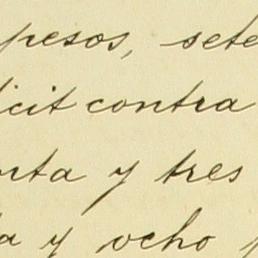 pesos, sete
icit contra
rta y tres
a y ocho